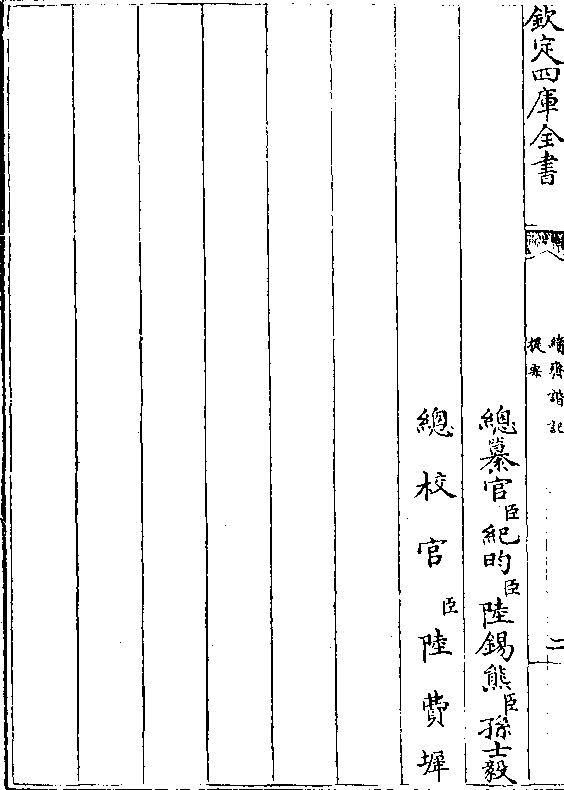 欽定四庫全書
續齊諧記
提要
二
總纂官臣紀昀臣陸錫熊臣孫士毅
總校官臣陸費墀